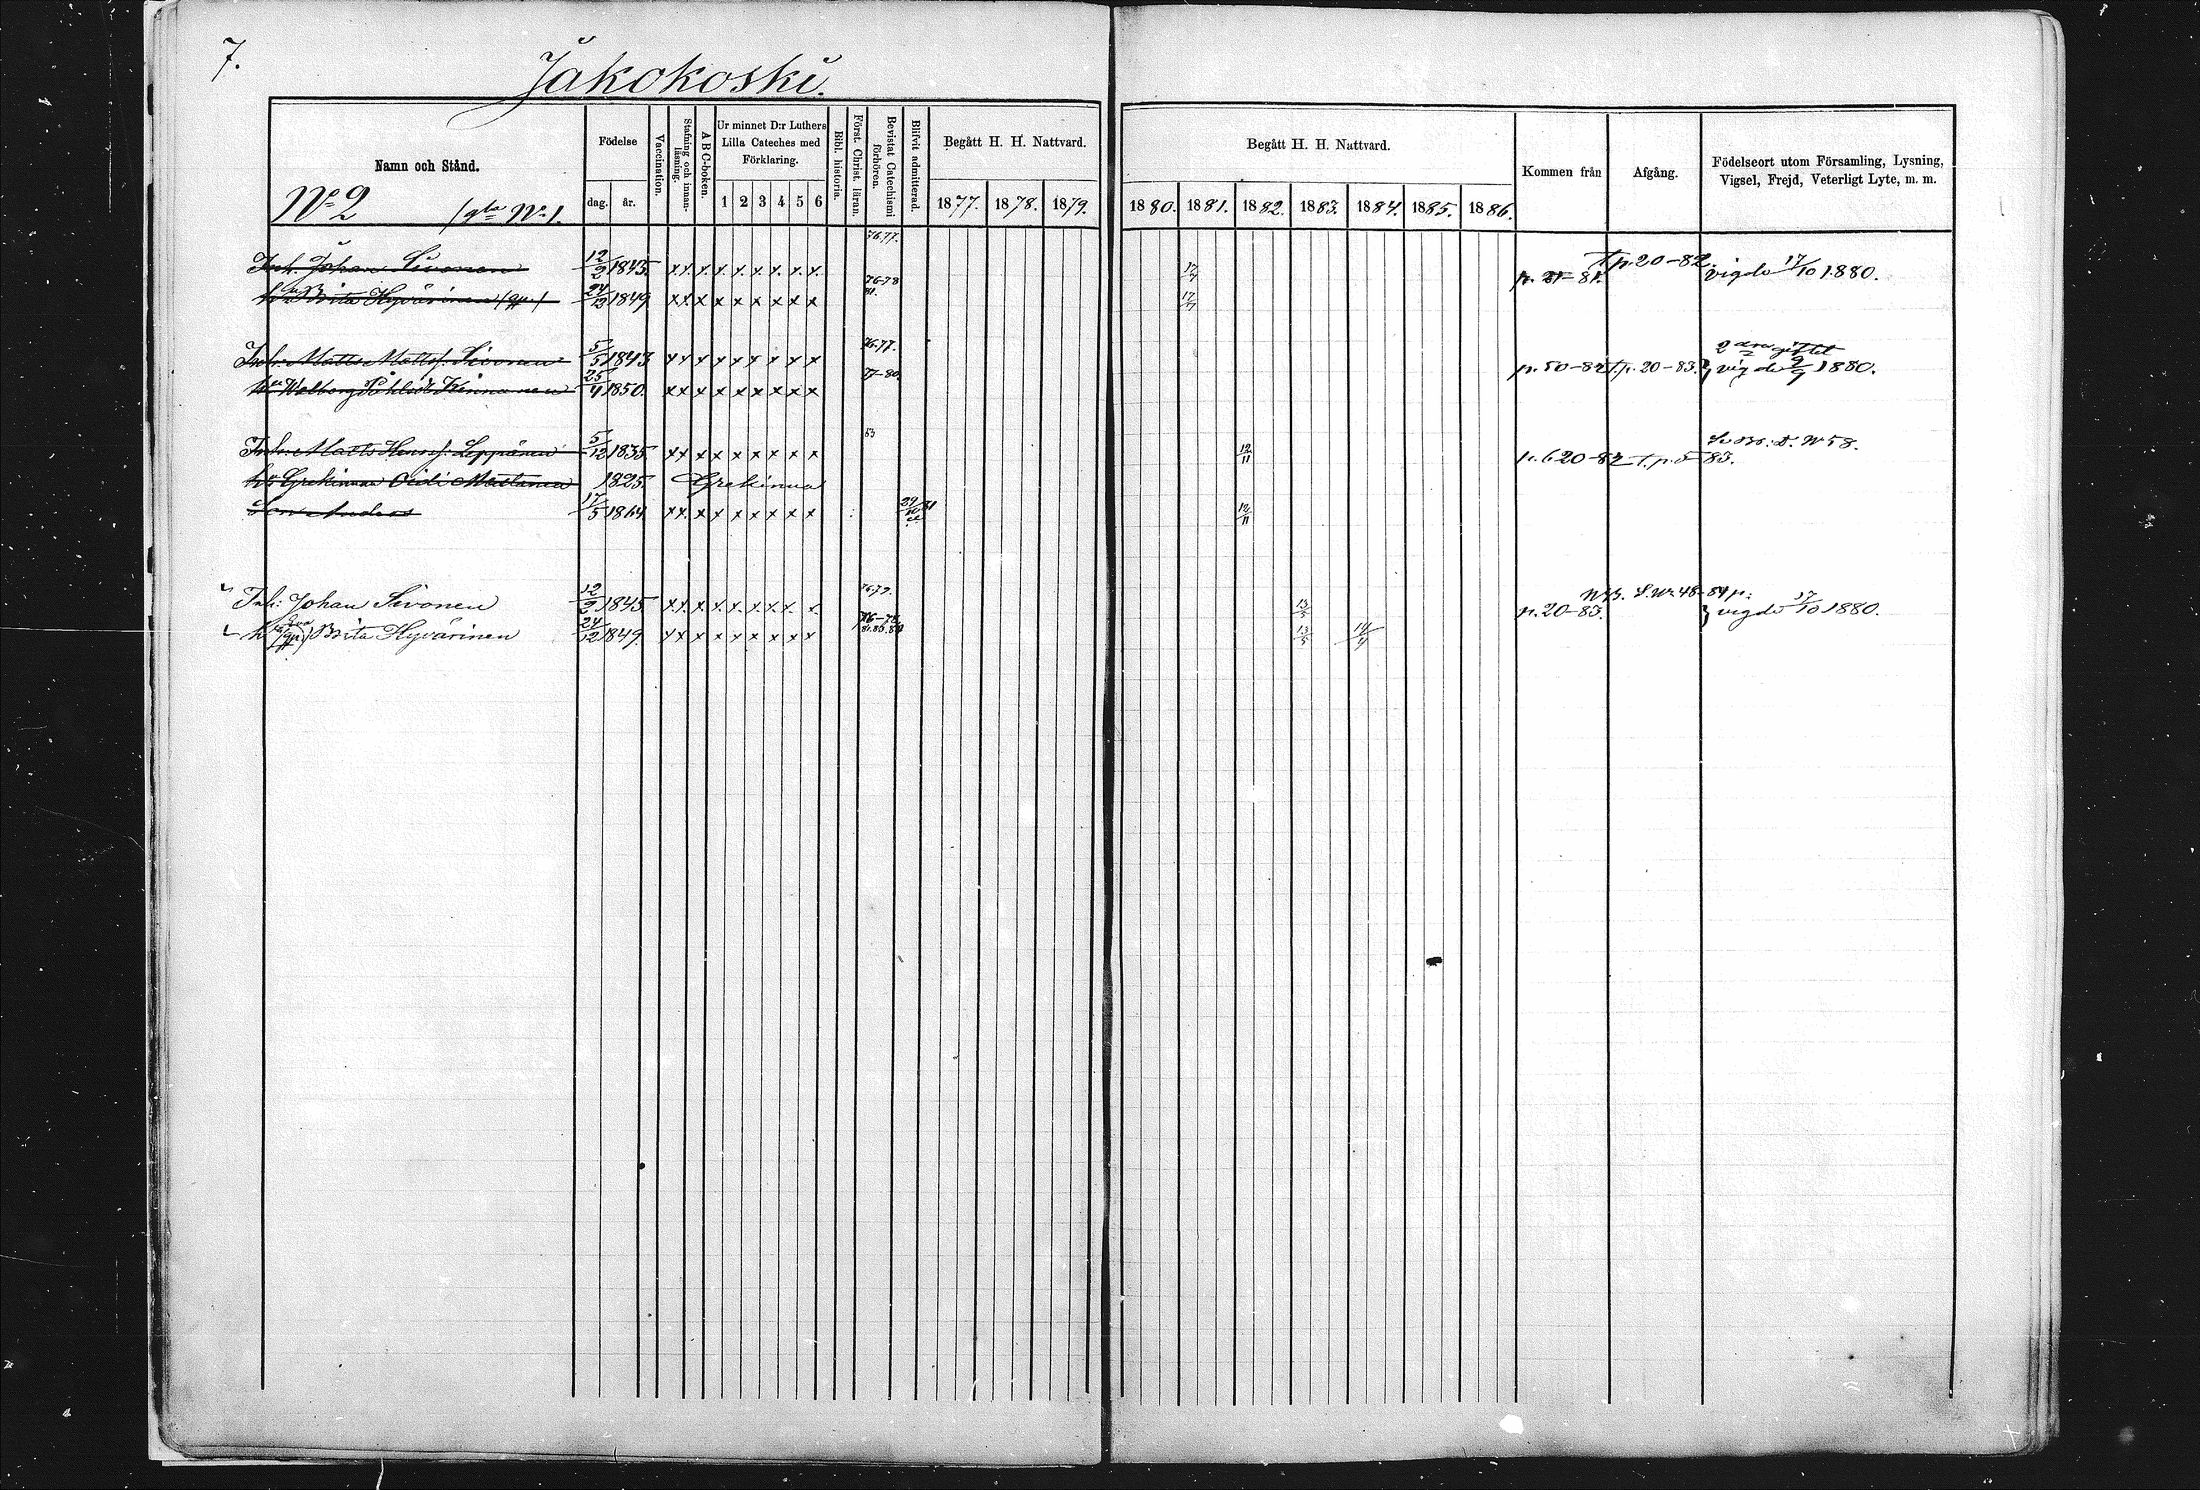 7.
Jakokoski.
Namn och Stånd.
Födelse
dag. år.
Vaccination.
Stafning och innanläsning.
ABC-boken.
Ur minnet D:r Luthers Lilla Cateches med Förklaring.
1 2 3 4 5 6
Bibl. historia.
Först. Christ. läran.
Bevistat Catechismi förhören.
Blifvit admitterad.
Begått H. H. Nattvard.
1877. 1878. 1879.
Begått H. H. Nattvard.
1880. 1881. 1882. 1883. 1884. 1885. 1886.
Kommen från
Afgång.
Födelseort utom Församling, Lysning, Vigsel, Frejd, Veterligt Lyte, m. m.
No 2 /gla No 1.
Inh. Johan Sivonen 12/2 1845. x x x x x x x x x 76.77. 17/7 p. 21-81. T.p. 20-82. vigde 17/10 1880.
Brita Hyvärinen 24/12 1849 x x x x x x x x x 76-78 81. 17/7
Inh. Matts Matts. Sivonen 5/5 1843 x x x x x x x x x 76.77. p. 50-82 T.p. 20-83. 2 dra giftet vigde 2/9 1880.
h:u Walborg Kinnunen 25/4 1850. x x x x x x x x x 77-80.
Inh: Matts Leppänen 5/12 1835. x x x x x x x x x 53 12/11 p. 620-82 T.p. 5-83. N 58.
h:u Grekinnan 1825. Grekinna
Son Anders 17/5 1864 x x x x x x x x x 12/11
Inh: Johan Sivonen 12/2 1845 x x x x x x x x x 76.79. 13/5 p. 20-83. 48-84 p. vigde 17/10 1880.
Brita Hyvärinen 24/12 1849. x x x x x x x x x 76-78. 13/5 14/4